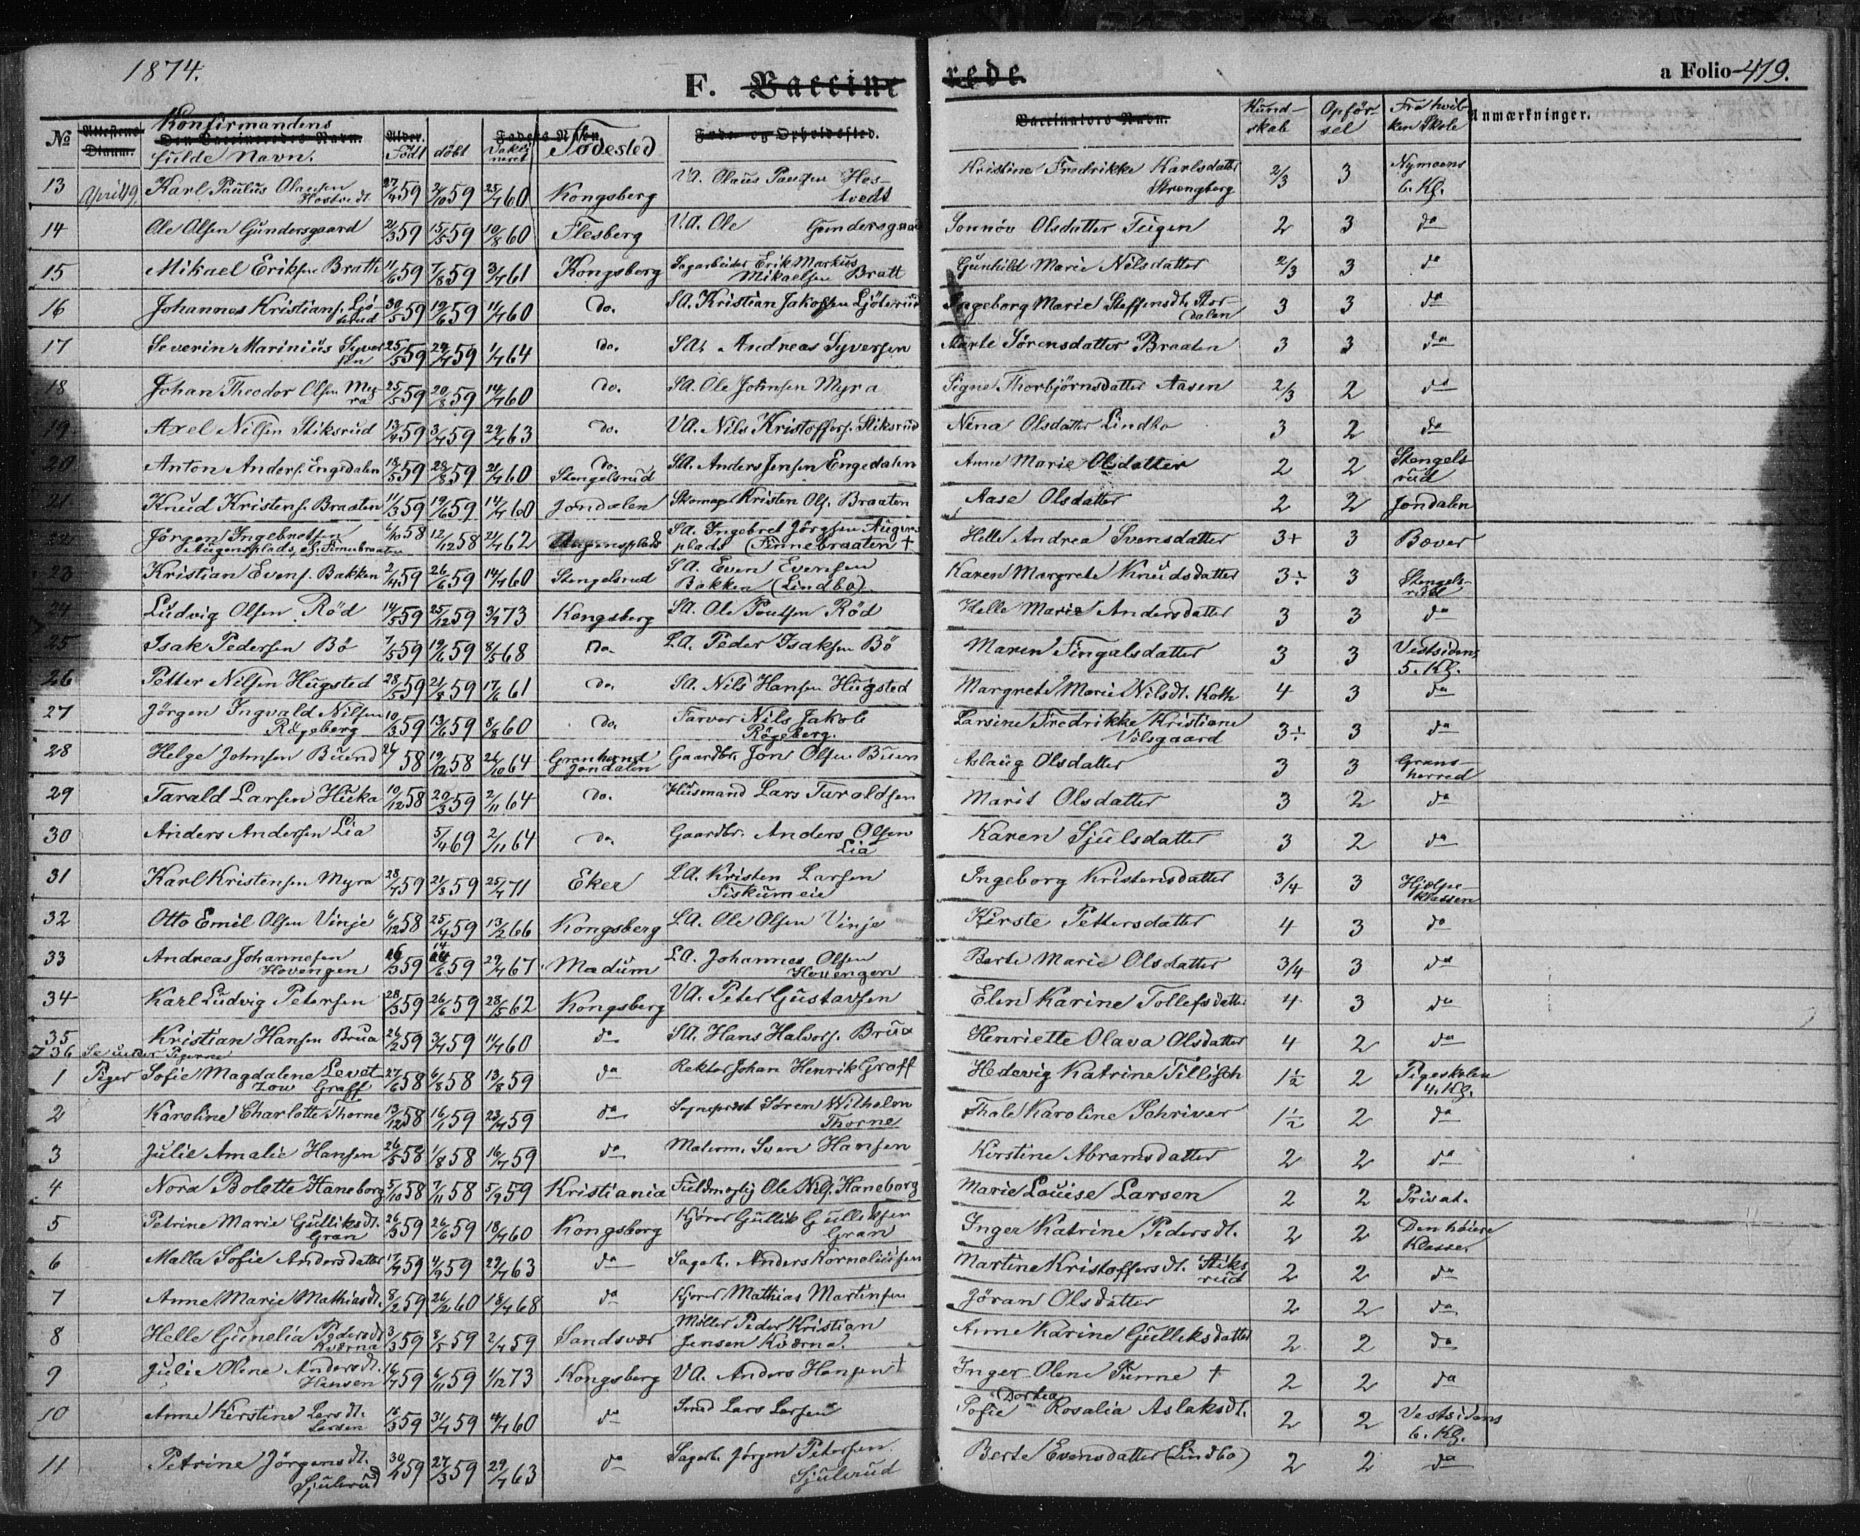 1874.
F. Vaccinerede.
a Folio 419.
No Attestens Datum. Konfirmandens fulde Navn. Alder. Født døbt Vaksineret Fødested Kundskab Opførsel Fra hvilken Skole Anmærkninger.
13 April 19. Karl Paulus Olausen Hostvedt 27/4 59 2/10 59 25/7 60 Kongsberg VA. Olaus Paulsen Hostvedt Kristine Fredrikke Karlsdatter Strengberg 2/3 3 Nymoens 6. Kl.
14 Ole Olsen Gundersgaard 2/3 59 15/5 59 10/8 60 Flesberg VA. Ole Gundersgaard Sonnøv Olsdatter Teigen 2 3 do
15 Mikael Eriksen Bratt 11/6 59 7/8 59 3/7 61 Kongsberg Sagarbeider Erik Markus Mikaelsen Bratt Gunhild Marie Nilsdatter 2/3 3 do
16 Johannes Kristians. Ljøterud 30/5 59 19/6 59 11/7 60 do. SA. Kristian Jakobsen Ljøterud Ingeborg Marie Steffensdt. Stordalen 3 3 do
17 Severin Marinius Syversen 25/5 59 24/7 59 1/7 64 do. SA. Andreas Syversen Marte Sørensdatter Braaten 3 3 do
18 Johan Theodor Olsen Myra 25/5 59 20/8 59 14/7 60 do. SA. Ole Johnsen Myra Signe Thorbjørnsdatter Aasen 2/3 2 do
19 Axel Nilsen Stiksrud 13/4 59 3/7 59 22/7 63 do. VA. Nils Kristoffers. Stiksrud Nina Olsdatter Lindbo 3 2 do
20 Anton Anders. Engedalen 18/5 59 28/8 59 21/7 60 do. Stengelsrud SA. Anders Jensen Engedalen Anne Marie Olsdatter 2 2 Stengelsrud
21 Knud Kristens. Braaten 11/3 59 19/6 59 14/7 60 Jondalen Skomager Kristen Ols. Braaten Aase Olsdatter 2 2 Jondalen
22 Jörgen Ingebretsen Augensplads, ej. Finnebraaten 6/10 58 12/12 58 21/7 62 Augensplads SA. Ingebret Jörgsen Augensplads (Finnebraaten † Helle Andrea Svensdatter 3+ 3 Bæver
23 Kristian Evens. Bakken 2/4 59 26/6 59 14/7 60 Stengelsrud SA. Even Evensen Bakken (Lindbo) Karen Margrete Knudsdatter 3÷ 3 Stengelsrud
24 Ludvig Olsen Röd 14/5 59 25/12 59 3/7 73 Kongsberg SA. Ole Poulsen Röd Helle Marie Andersdatter 3 3 do
25 Isak Pedersen Bö 7/5 59 19/6 59 8/5 68 do. LA. Peder Isaksen Bö Maren Fingalsdatter 3 3 Vestsidens 5. Kl.
26 Petter Nilsen Hugsted 28/5 59 21/8 59 17/6 61 do. SA. Nils Hansen Hugsted Margrete Marie Nilsdt. Koth 4 3 do
27 Jörgen Ingvald Nilsen Rögeberg 10/3 59 13/6 59 8/8 60 do. Farver Nils Jakob Rögeberg. Larsine Fredrikke Kristiane Volsgaard 3÷ 3 do
28 Helge Johnsen Buend 58 19/12 58 26/10 64 Granherred Jondalen Gaardbr. Jon Olsen Buen Aslaug Olsdatter 3 3 Gransherred
29 Tarald Larsen Huka 10/12 58 20/3 59 2/11 64 do. Husmand Lars Taroldsen Marit Olsdatter 3 2 do
30 Anders Andersen Lia 5/4 69 2/11 64 do Gaardbr. Anders Olsen Lia Karen Sjulsdatter 3 2 do
31 Karl Kristensen Myra 28/4 59 21/8 59 25/7 71 Eker LA. Kristen Larsen Fiskumeie Ingeborg Kristensdatter 3/4 3 Hjelpeklassen
32 Otto Emil Olsen Vinje 6/12 58 25/4 59 13/2 66 Kongsberg LA. Ole Olsen Vinje Kirste Pettersdatter 4 3 do
33 Andreas Johannesen Hovengen 26/3 59 14/6 59 29/7 67 Madum LA. Johannes Olsen Hovengen Berte Marie Olsdatter 3/4 3 do
34 Karl Ludvig Petersen 28/3 59 26/6 59 28/5 62 Kongsberg VA. Peter Gustavsen Elen Karine Tollefsdatter 4 3 do
35 Kristian Hansen Brua 26/2 59 3/7 59 11/7 60 do SA. Hans Halvors. Brua Henriette Olava Olsdatter 4 2 do
736 Se under Pigerne
1 Piger Sofie Magdalene Levetzow Graff 27/6 58 6/8 58 13/8 59 do Rektor Johan Henrik Graff Hedevig Katrine Tillisch 1½ 2 Pigeskolen 4. Kl.
2 Karoline Charlotte Thorne 13/12 58 16/1 59 23/7 59 do Sogneprest Sören Wilhelm Thorne Thale Karoline Schriver 1½ 2 do
3 Julie Amalie Hansen 26/5 58 1/8 58 16/7 59 do Materm. Sven Hansen Kirstine Abramsdatter 2 2 do
4 Nora Bolette Haneborg 5/10 58 7/11 58 5/9 59 Kristiania Fuldmegtig Ole Nils. Haneborg Marie Louise Larsen 2 2 Privat.
5 Petrine Marie Gulliksdt. Gran 26/3 59 26/6 59 18/7 60 Kongsberg Kjører Gullik Gulliksen Gran Inger Katrine Pedersdt. 2 2 Den høiere Klasse.
6 Malla Sofie Andersdatter 17/7 59 4/9 59 29/7 63 do Sagarb. Anders Korneliusen Martine Kristoffersdt. Stiksrud 2 2 do
7 Anne Marie Mathiasdt. 8/2 59 26/2 60 18/7 68 do Kjører Mathias Martinsen Jöran Olsdatter 2 2 do
8 Helle Gunelia Pedersdt. Kværna 3/3 59 8/5 59 2/7 59 Sandsvær Möller Peder Kristian Jensen Kværna. Anne Karine Gulliksdatter 2 2 do
9 Julie Oline Andersdt. Hansen 16/7 59 6/11 59 1/12 73 Kongsberg VA. Anders Hansen † Inger Olene Tunne † 2 2 do
10 Anne Kirstine Larsdt. Larsen 16/3 59 31/7 59 4/7 60 do Smed Lars Larsen Sofie Dorthea Rosalia Aslaksdt. 2 2 Vestsidens 6. Kl.
11 Petrine Jörgensdt. Sjulsrud 30/1 59 27/3 59 29/7 63 do Sagarb. Jörgen Petersen Sjulsrud Berte Evensdatter (Lindbo) 2 2 do